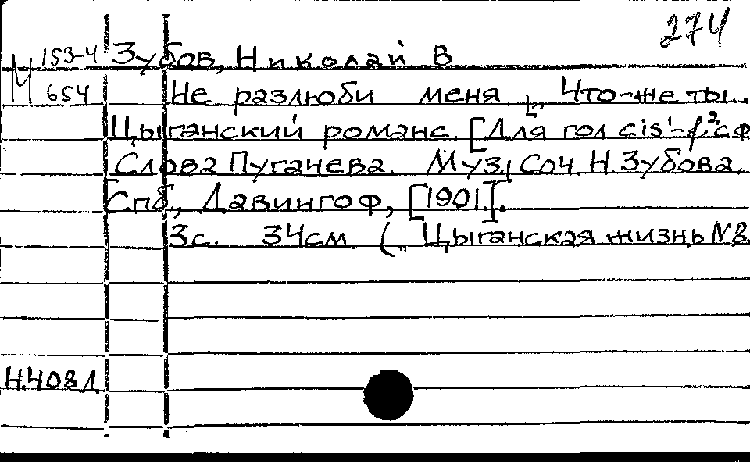 274
М 153-4 Зубов, Николай В
654 Не разлюби меня [„Что-же ты..
Цыганский романс. [Для гол cis¹-f² с ф
Слова Пугачева. Муз., соч. Н. Зубова.
Спб., Давингоф, [1901].
3с. 34см („Цыганская жизнь N8
Н.408Л